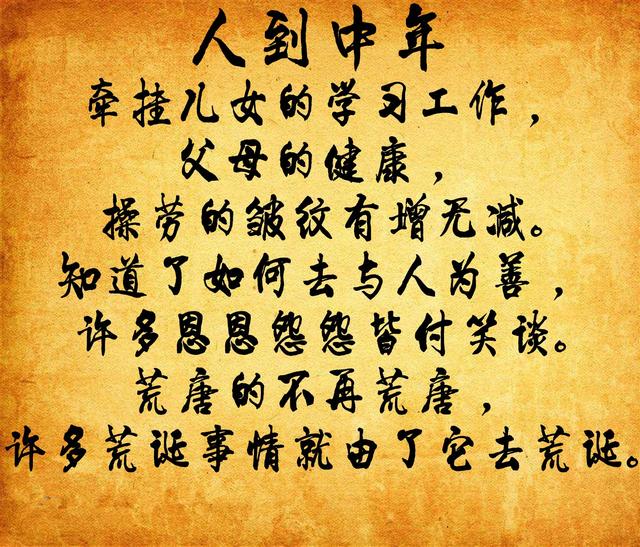 人到中年
牵挂儿女的学习工作，
父母的健康，
操劳的皱纹有增无减。
知道了如何去与人为善，
许多恩恩怨怨皆付笑谈。
荒唐的不再荒唐，
许多荒诞事情就由了它去荒诞。